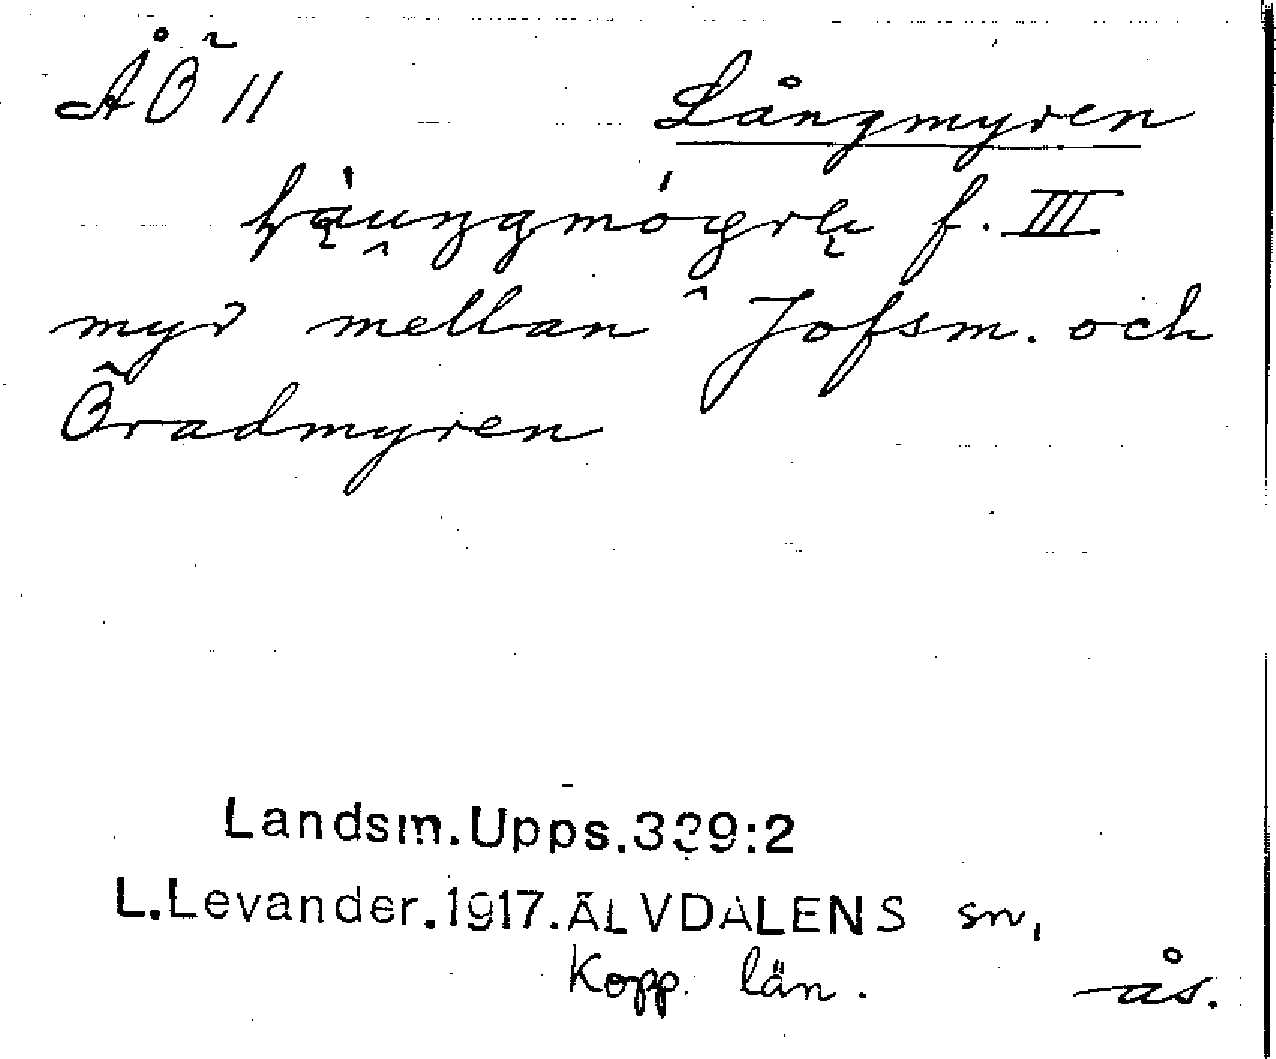 ÅÖ 11
Långmyren
f. III
myr mellan Jofsm. och
Öradmyren
Landsm.Upps.339:2
L.Levander.1917.ÄLVDALENS sn,
Kopp. län.
ås.